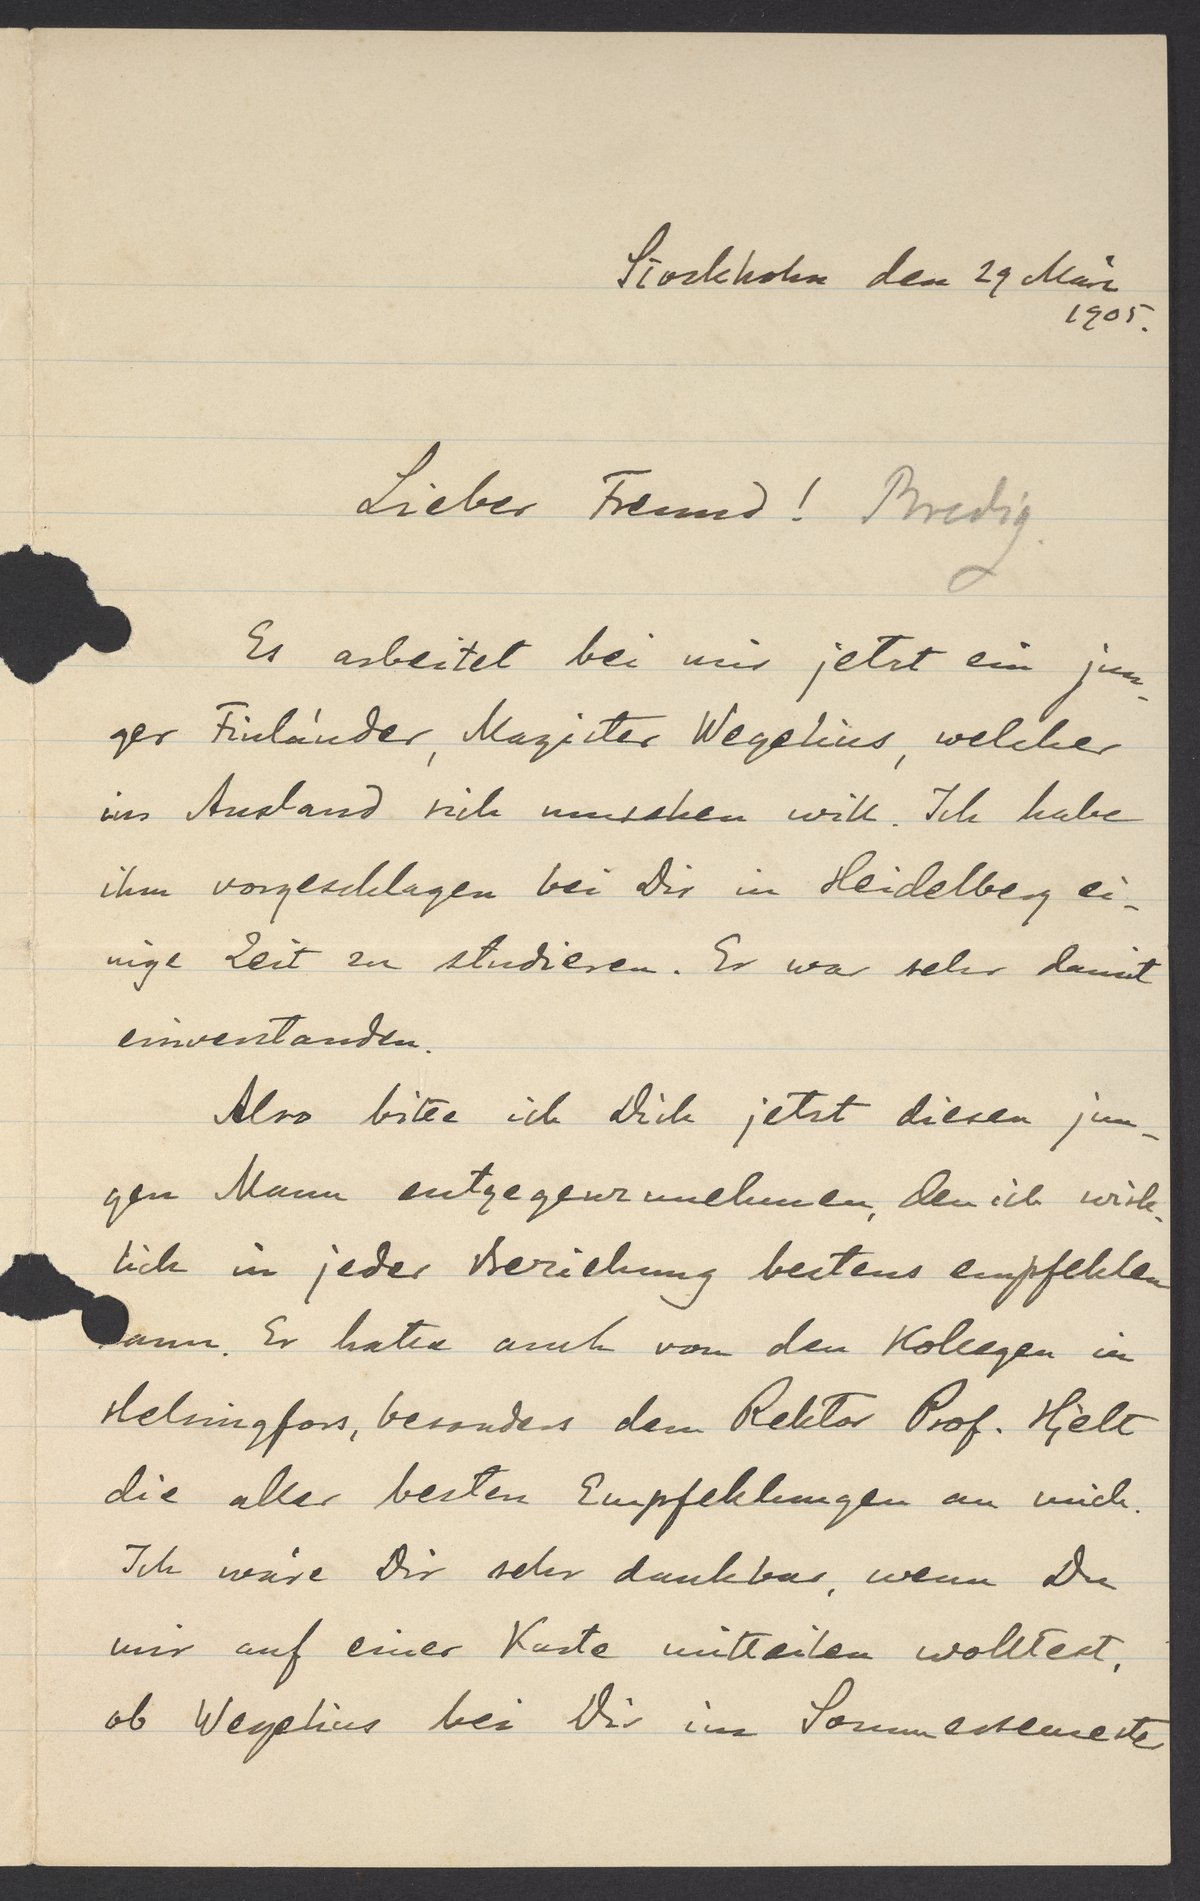 Stockholm den 29 März
1905.
Lieber Freund! Bredig
Es arbeitet bei mir jetzt ein jun-
ger Finländer, Magister Wegelius, welcher
im Ausland sich umsehen will. Ich habe
ihm vorgeschlagen bei Dir in Heidelberg ei-
nige Zeit zu studieren. Er war sehr damit
einverstanden.
Also bitte ich Dich jetzt diesen jun-
gen Mann entgegenzunehmen, den ich wirk-
lich in jeder Beziehung bestens empfehlen
kann. Er hatte auch von den Kollegen in
Helsingfors, besonders dem Rektor Prof. Hjelt
die aller besten Empfehlungen an mich.
Ich wäre Dir sehr dankbar, wenn Du
mir auf einer Karte mitteilen wolltest,
ob Wegelius bei Dir im Sommersemester